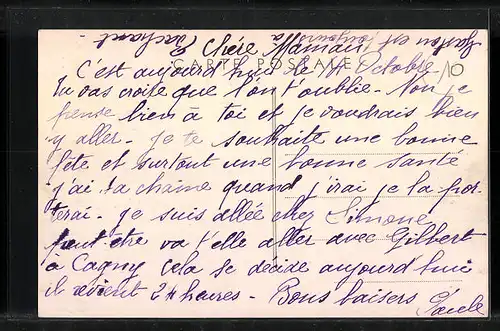 Chère Maman
CARTE POSTALE
C'est aujourd'hui le Octobre
tu vas croire que l'on t'oublie. Non je
pense bien à toi et je voudrais bien
y aller. Je te souhaite une bonne
fête et surtout une bonne santé
j'ai ta chaine quand j'irai je la por-
terai. Je suis allée chez Simone
peut être va t'elle aller avec Gilbert
à Cagny cela se décide aujourd'hui
il revient 24 heures. Bons baisers